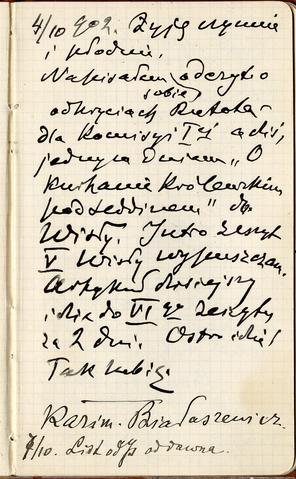 4/10 902. Żyję czynnie
i płodnie.
Napisałem sobie odczyt o
odkryciach
dla Komisyi I ej a dziś,
jednym dniem „O
kurhanie Królewskim
pod Seddinem” do
Wisły. Jutro zeszyt
V Wisły wypuszczam.
Artykuł dzisiejszy
idzie do VI go zeszytu
za 2 dni. Ostro idzie!
Tak lubię.
Kazim. Białaszewicz.
7/10. List od oddawna.